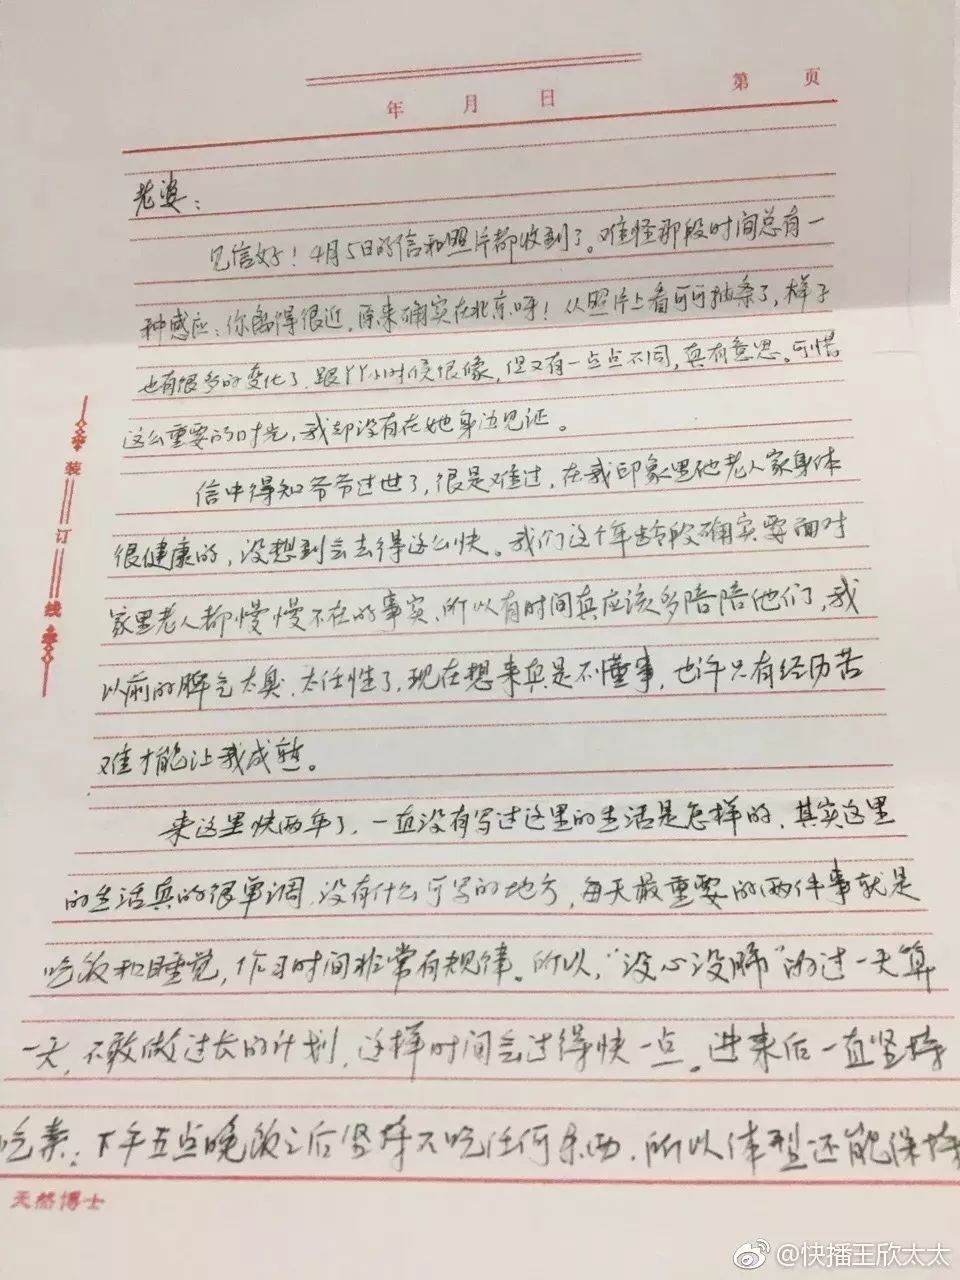 第 页
年 月 日
老婆：
见信好！4月5日的信和照片都收到了。难怪那段时间总有一
种感应：你离得很近，原来确实在北京呀！从照片上看可可抽条了，样子
也有很多的变化了，跟丫丫小时候很像，但又有一点点不同，真有意思。可惜
这么重要的时光，我却没有在她身边见证。
信中得知爷爷过世了，很是难过，在我印象里他老人家身体
很健康的，没想到会去得这么快。我们这个年龄段确实要面对
家里老人都慢慢不在的事实，所以有时间真应该多陪陪他们，我
以前的脾气太臭，太任性了，现在想来真是不懂事，也许只有经历苦
难才能让我成熟。
来这里快两年了，一直没有写过这里的生活是怎样的，其实这里
的生活真的很单调，没有什么可写的地方，每天最重要的两件事就是
吃饭和睡觉，作习时间非常有规律。所以，“没心没肺”的过一天算
一天，不敢做过长的计划，这样时间会过得快一点。进来后一直坚持
吃素；下午五点晚饭之后坚持不吃任何东西，所以体型还能保持
装订线
天然博士
@快播王欣太太